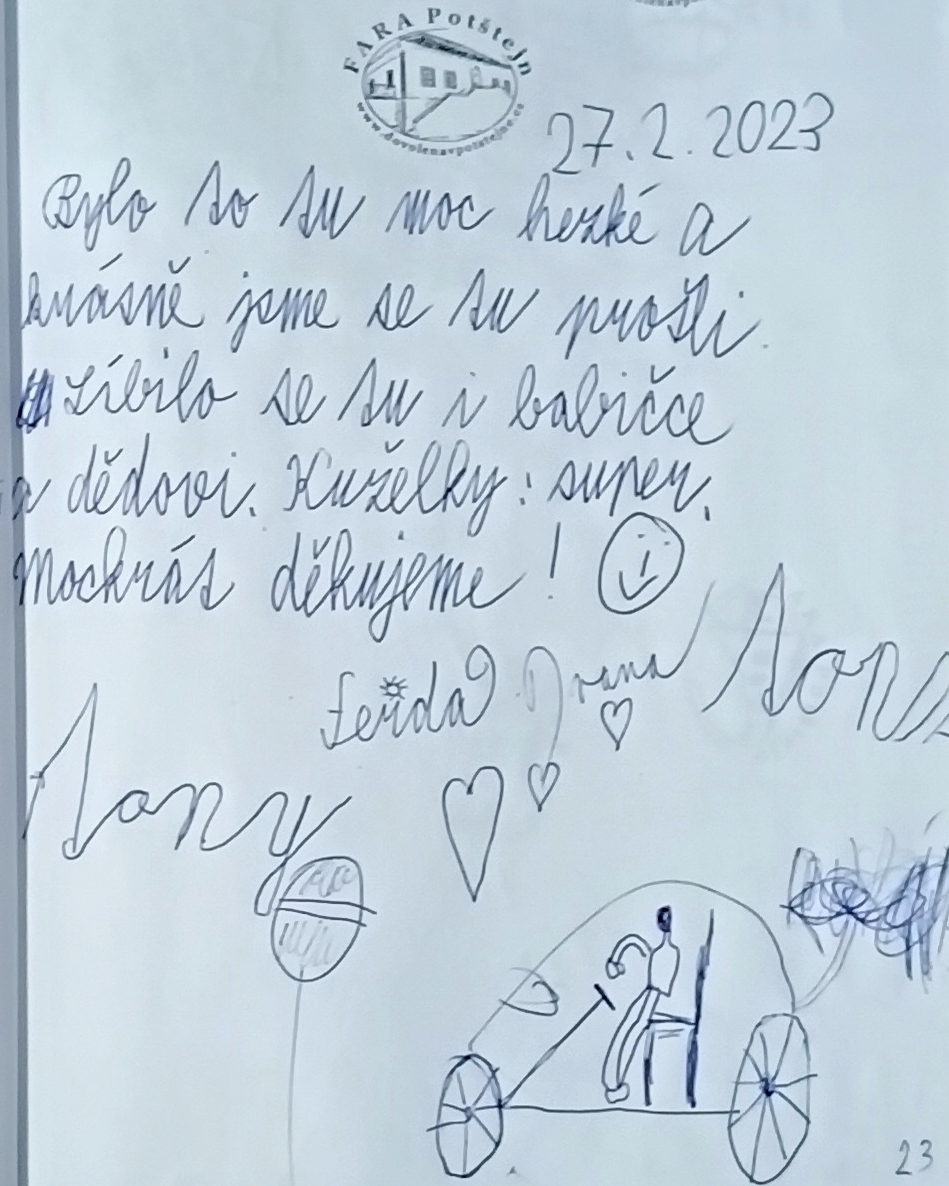 FARA Potštejn
www.dovolenavpotstejne.cz
27.2.2023
Bylo to tu moc hezké a
krásně jsme se tu prošli.
Líbilo se tu i babičce
a dědovi. Kuželky: super.
Mockrát děkujeme!
Ferda Ivana Tony
Tony
23